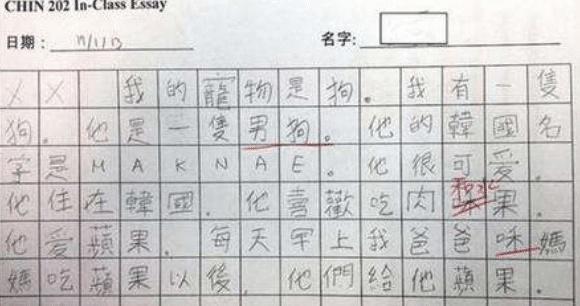 CHIN 202 In-Class Essay
日期： 11/1/13 名字：
X X 我的寵物是狗。我有一隻
狗。他是一隻男狗。他的韓國名
字是MAKNAE。他很可愛。
和水
他住在韓國。他喜歡吃肉果。
他愛蘋果。每天早上我爸爸咊媽
媽吃蘋果以後。他們給他蘋果。